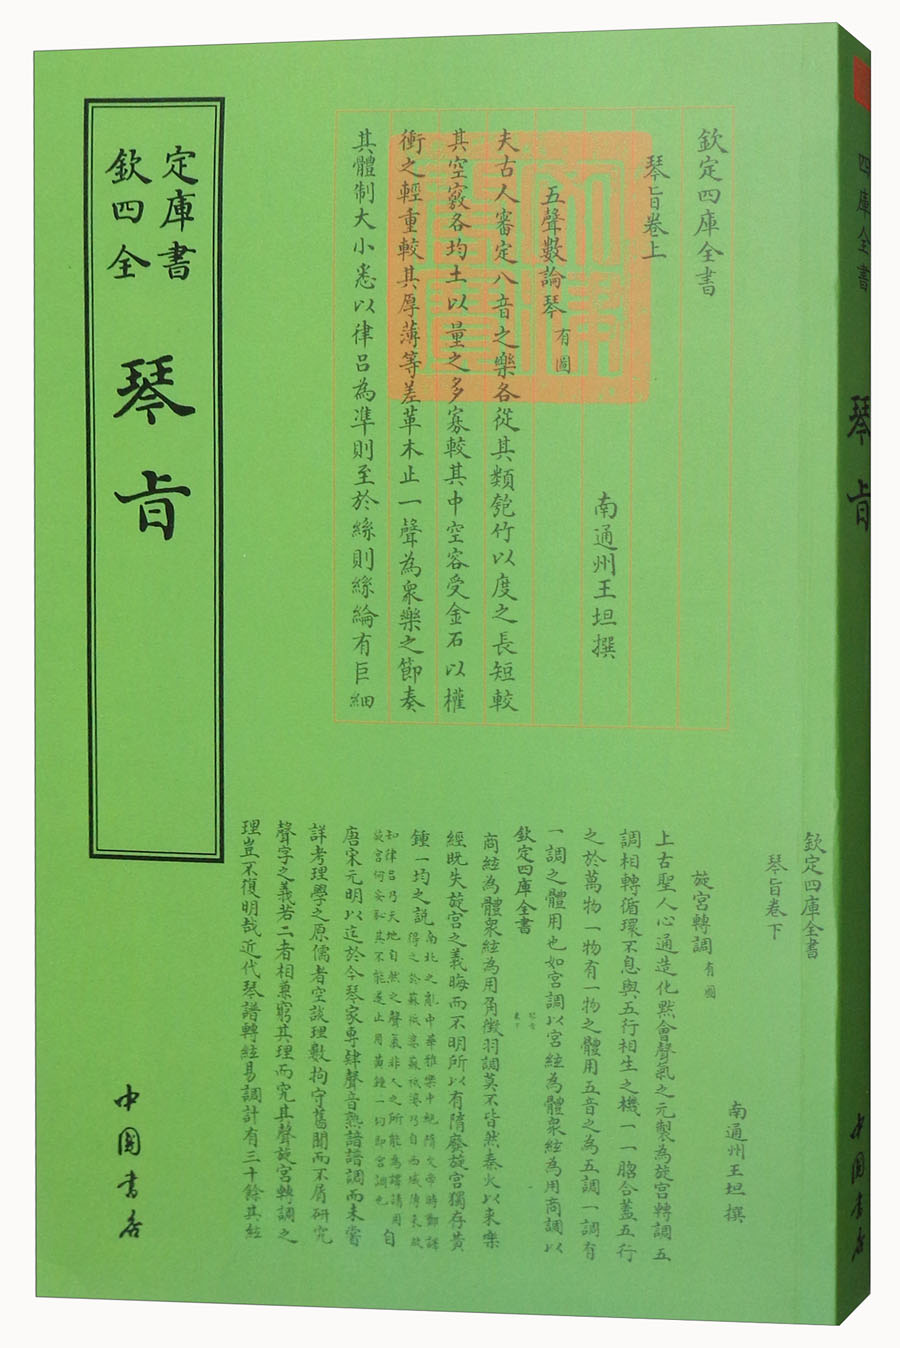 欽定四庫全書
琴旨
中國書店
欽定四庫全書
琴旨卷上
南通州王坦撰
五聲數論琴有圖
夫古人審定八音之樂各從其類匏竹以度之長短較
其空竅各均土以量之多寡較其中空容受金石以權
衝之輕重較其厚薄等差革木止一聲為衆樂之節奏
其體制大小悉以律呂為準則至於絲則絲綸有巨細
欽定四庫全書
琴旨卷下
南通州王坦撰
旋宮轉調有圖
上古聖人心通造化黙會聲氣之元製為旋宮轉調五
調相轉循環不息與五行相生之機一一脗合蓋五行
之於萬物一物有一物之體用五音之為五調一調有
一調之體用也如宮調以宮絃為體衆絃為用商調以
欽定四庫全書
商絃為體衆絃為用角徵羽調莫不皆然秦火以來樂
經既失旋宮之義晦而不明所以有隋廢旋宮獨存黄
鍾一均之説
唐宋元明以迄於今琴家專肄聲音熟諳譜調而未嘗
詳考理學之原儒者空談理數拘守舊聞而不屑研究
聲字之義若二者相兼窮其理而究其聲旋宮轉調之
理豈不復明哉近代琴譜轉絃易調計有三十餘其絃
四庫全書
琴旨
中國書店